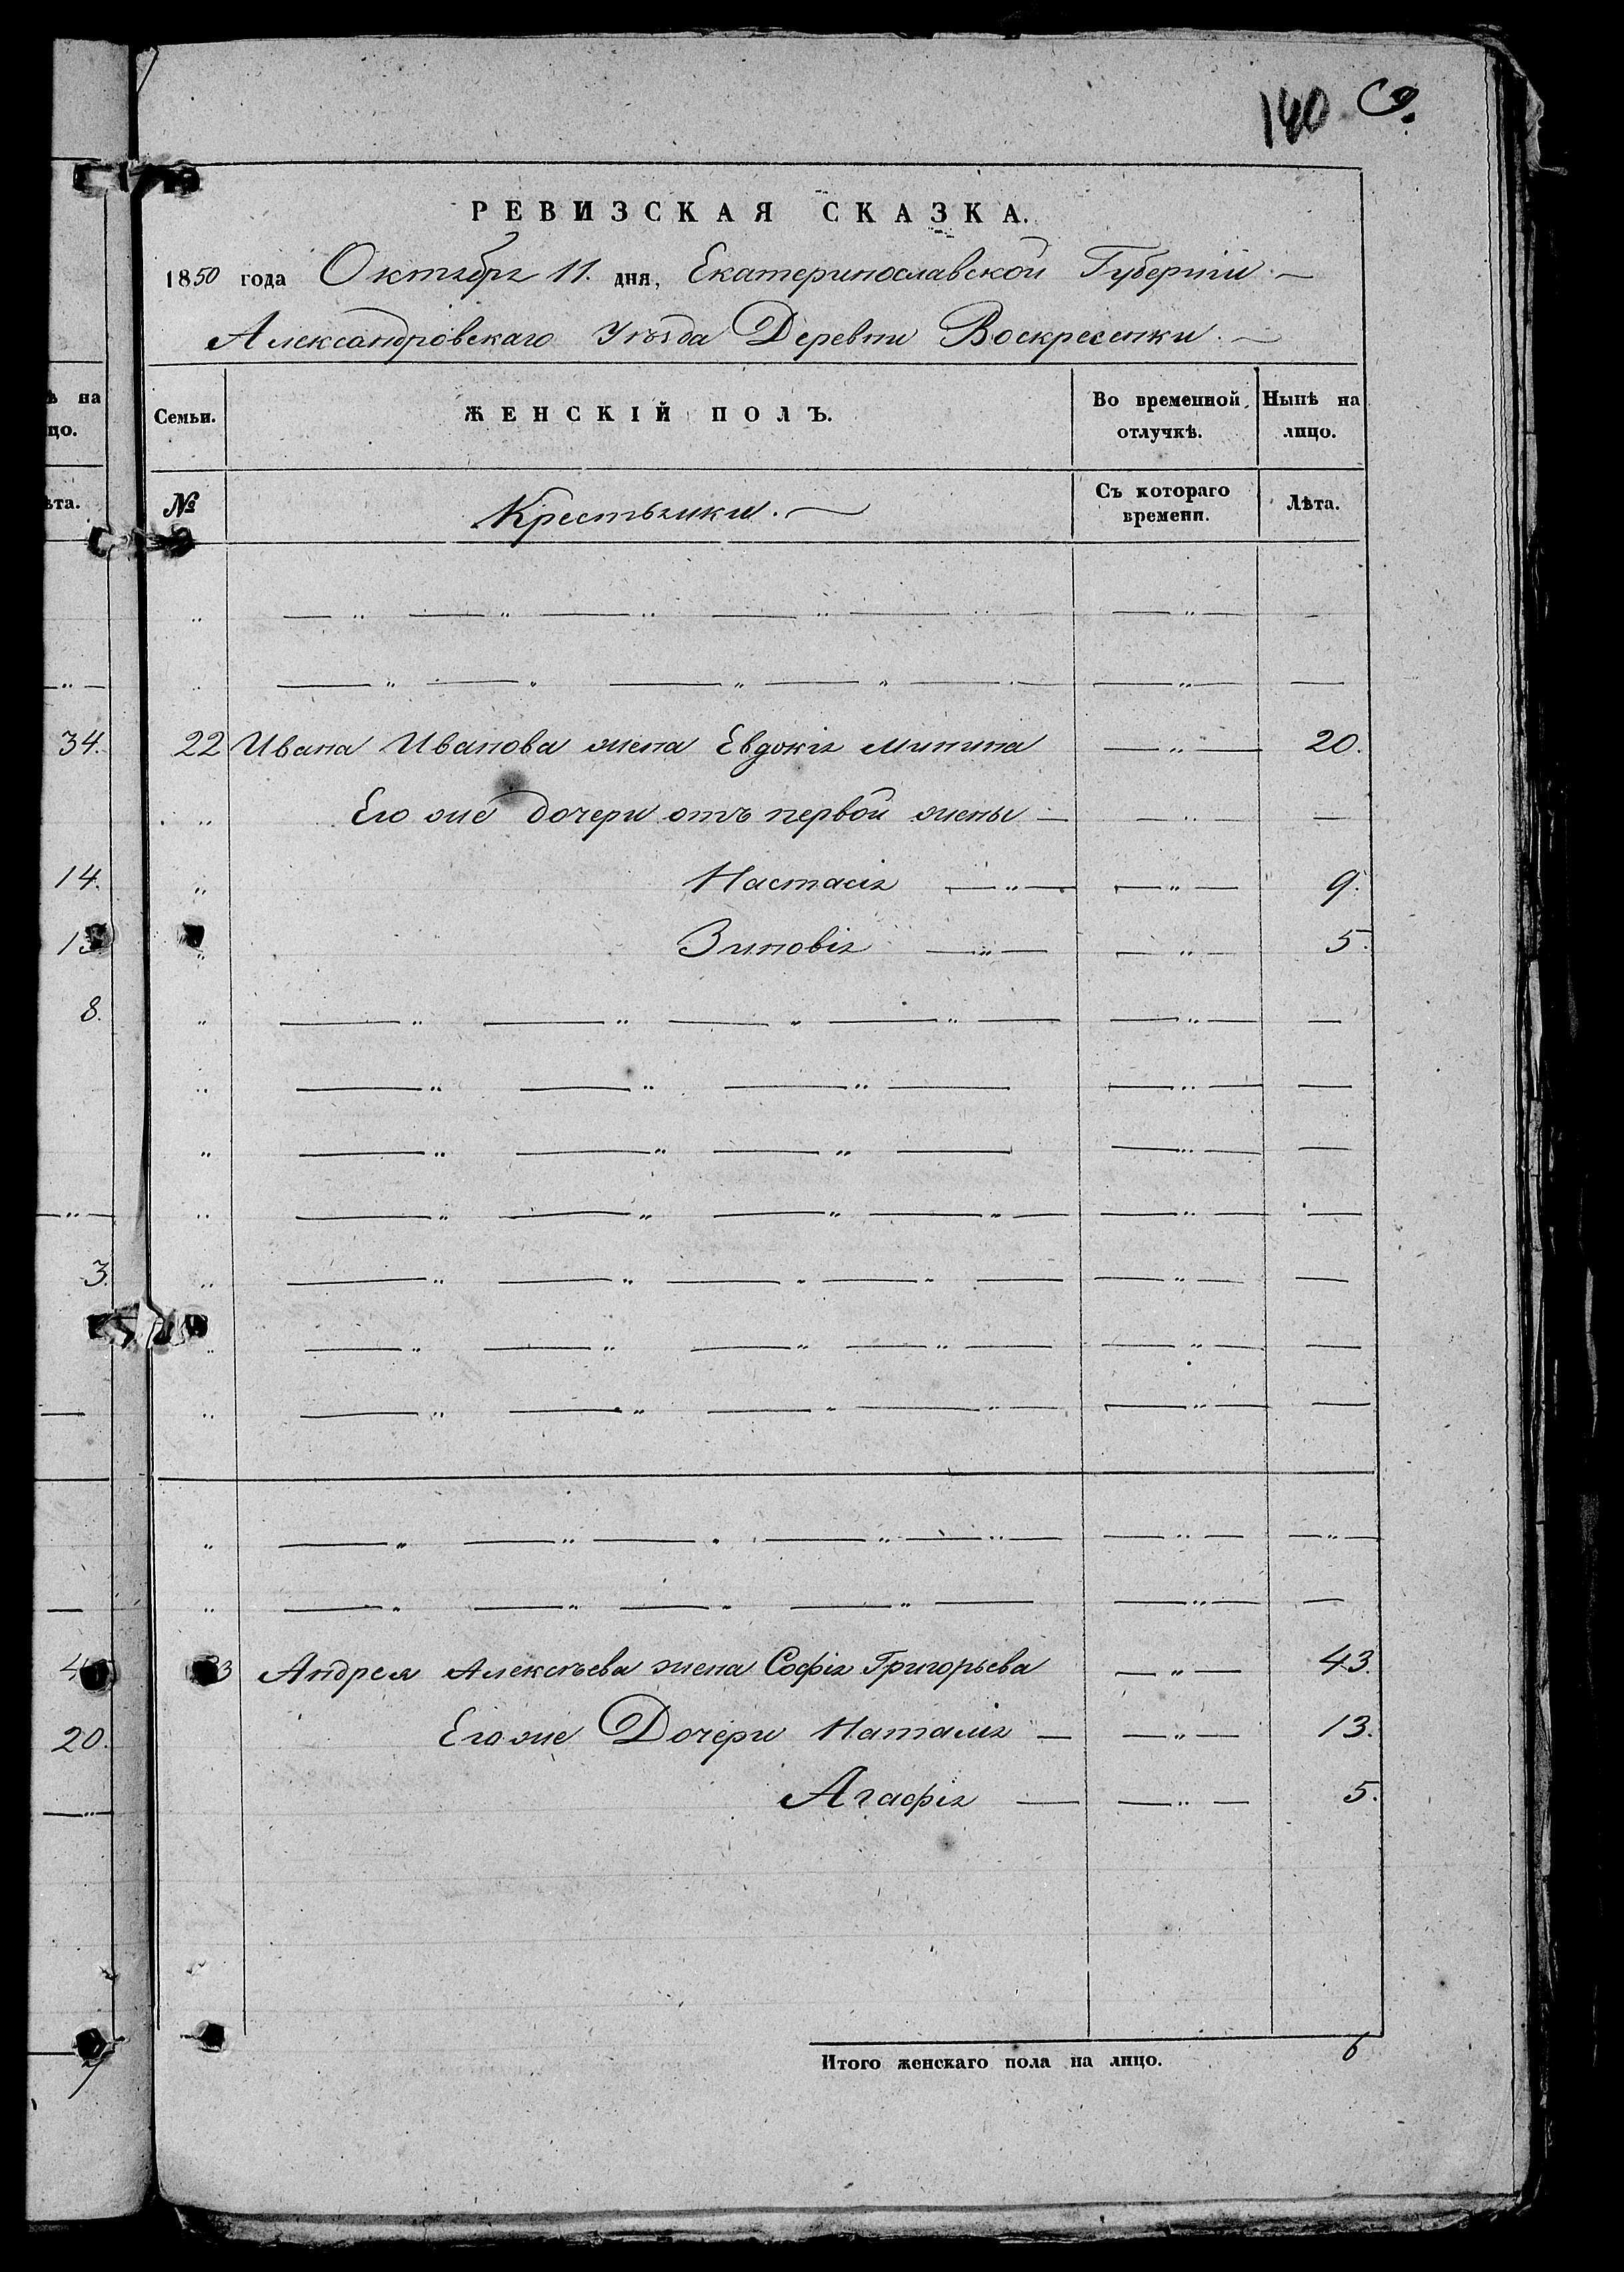 140 9.
РЕВИЗСКАЯ СКАЗКА.
1850 года Октября 11. дня, Екатеринославской Губернiи
Александровскаго Уѣзда Деревни Воскресенки.
ѣ на
цо.
Семьи.
ЖЕНСКІЙ ПОЛЪ.
Во временной отлучкѣ.
Нынѣ на лицо.
ѣта.
№
Крестьянки.
Съ котораго времени.
Лѣта.
34. 22 Ивана Иванова жена Евдокiя Минина 20.
Его же дочери отъ первой жены
14. Настасiя 9.
Зиновiя 5.
8.
3.
Андрея Алексѣева жена Софiя Григорьева 43.
20. Его же Дочери Наталiя 13.
Агафiя 5.
7
Итого женскаго пола на лицо. 6